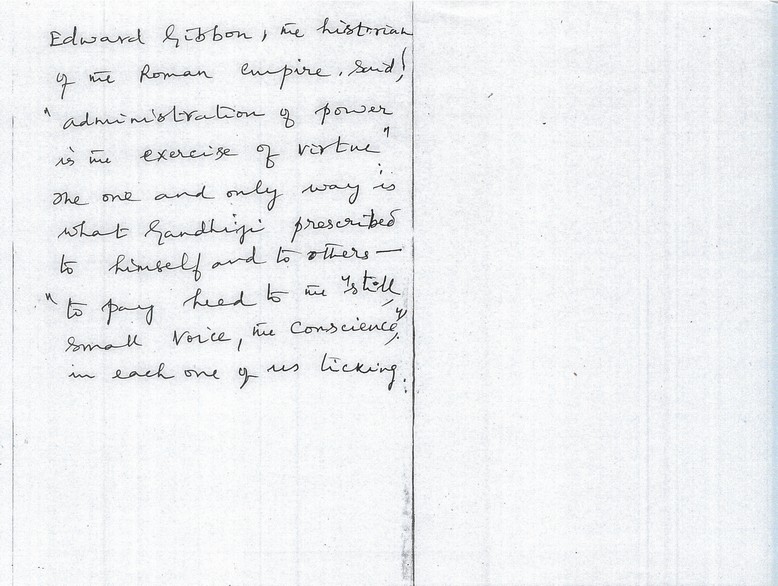 Edward Gibbon, the historian
of the Roman empire, said,
"administration of power
is the exercise of virtue"
The one and only way is
what Gandhiji prescribed
to himself and to others —
"to pay heed to the "still,
small voice, the conscience,"
in each one of us ticking.